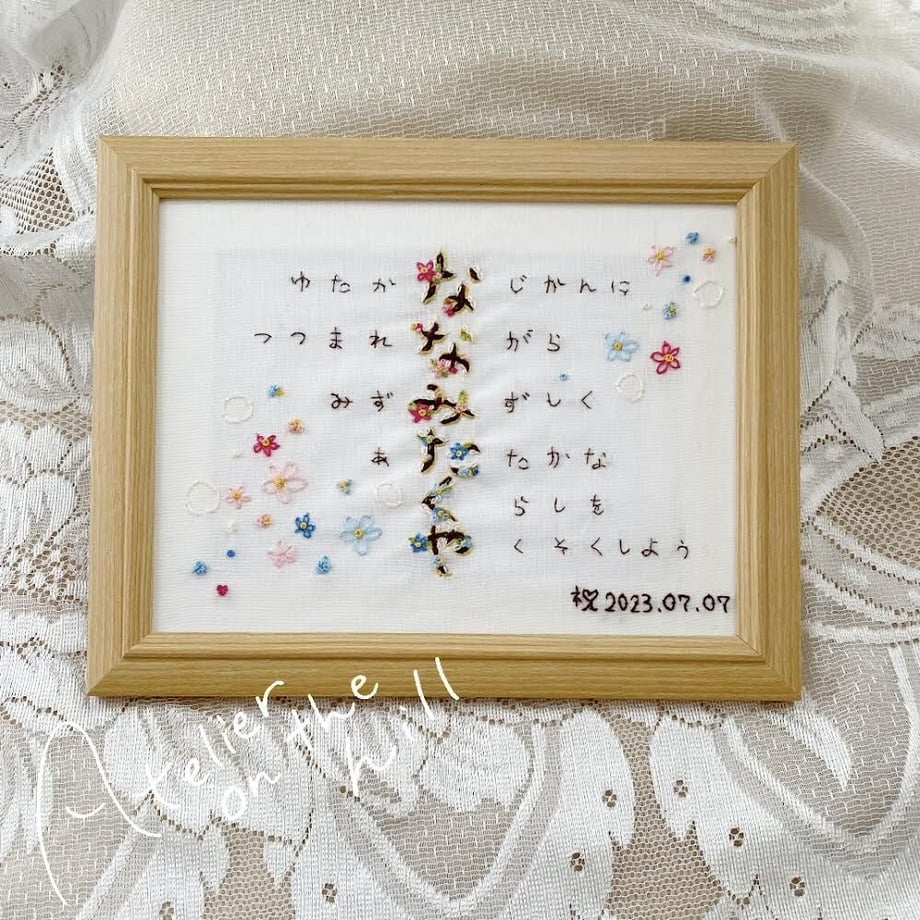 ゆたかなじかんに
つつまれながら
みずみずしく
あたたかな
くらしを
やくそくしよう
祝2023.07.07
Atelier
on the
hill